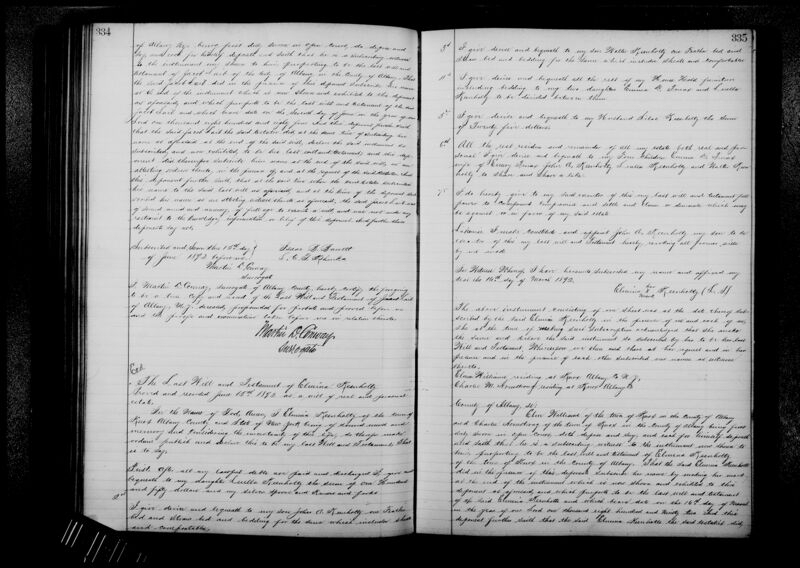 334
of Albany N.Y. being first duly sworn in open Court, do depose and
say and each for himself deposes and saith that he is a subscribing witness
to the instrument now shown to him purporting to be the last will and
testament of Jared Hart of the City of Albany in the County of Albany. That
the said in the presence of this deponent subscribe his name
at the end of the instrument which is now shown and exhibited to this deponent
as aforesaid and which purports to be the last will and testament of the said
and which bears date on the second day of June in the year of our
Lord one thousand eight hundred and eighty five And this deponent further saith
that the said the said testator did, at the same time of subscribing his
name as aforesaid at the end of the said will, declare the said instrument so
subscribed and now exhibited to be his last will and testament; and this
deponent did thereupon subscribe his name at the end of the said will, as an
attesting witness thereto, in the presence of, and at the request of the said testator And
this deponent further saith, that at the said time when the said testator subscribed
his name to the said last will as aforesaid, and at the time of the deponent
subscribing his name as an attesting witness thereto as aforesaid, the said
of sound mind and memory, of full age to execute a will, and was not under any
restraint to the knowledge, information or belief of this deponent And further these
deponents say not.
Subscribed and Sworn this 15th day
of June 1892 before me
Martin D. Conway
Surrogate
I, Martin D. Conway, Surrogate of Albany County, hereby certify the foregoing
to be a true copy and record of the Last Will and Testament of
of Albany, N.Y. deceased, propounded for probate and proved before me
and the proofs and examinations taken before me in relation thereto
Martin D. Conway
Surrogate
The Last Will and Testament of Elmina Keenholtz
Proved and recorded June 15th 1892 as a will of real and personal
estate.
In the Name of God, Amen, I Elmina Keenholtz of the town of
Knox Albany County and State of New York being of sound mind and
memory and considering the uncertainty of this life, do therefore make
ordain publish and declare this to be my last Will and Testament: That
is to say,
First. After all my lawful debts are paid and discharged I give and
bequeath to my daughter Luella Keenholtz the sum of One Hundred
and fifty dollars and my silver spoons and knives and forks
2nd
I give devise and bequeath to my son John A. Keenholtz one Feather
bed and straw bed and bedding for the same which includes sheets
and comfortable.
335
3d I give devise and bequeath to my son Walter Keenholtz one Feather bed and
straw bed and bedding for the same which includes sheets and comfortable
4th I give devise and bequeath all the rest of my House Hold furniture
including bedding to my two daughters Emma and Luella
Keenholtz to be divided between them
5th I give devise and bequeath to my Husband Keenholtz the sum
of Twenty five dollars
6th All the rest residue and remainder of all my estate both real and
personal I give devise and bequeath to my Four Children Emma
wife of John A. Keenholtz Luella Keenholtz and Walter
Keenholtz to share and share a like.
7th I do hereby give to my said executor of this my last will and testament full
power to compound compromise and settle any claim or demands which may
be against or in favor of my said estate
Likewise I make constitute and appoint John A. Keenholtz my son to be
executor of this my last will and Testament hereby revoking all former wills
by me made
In Witness Whereof, I have hereunto subscribed my name and affixed my
seal the 16th day of March 1892.
Elmina her mark Keenholtz (L.S.)
The above instrument consisting of one sheet was at the date thereof
subscribed by the said Elmina Keenholtz in the presence of us and each of us,
she at the time of making said subscription acknowledged that she made
the same and declared the said instrument so subscribed by her to be her last
Will and Testament Whereupon we then and there at her request and in her
presence and in the presence of each other subscribed our names as witnesses
thereto.
Williams, residing at Knox Albany Co N.Y.
Charles M. Armstrong, residing at Knox Albany Co
County of Albany, ss:
Williams of the town of Knox in the County of Albany
and Charles Armstrong of the town of Knox in the County of Albany being first
duly sworn in open Court, doth depose and say; and each for himself deposeth
and saith that he is a subscribing witness to the instrument now shown to
him purporting to be the last will and testament of Elmina Keenholtz
of the town of Knox in the County of Albany. That the said Elmina Keenholtz
did in the presence of this deponent subscribe her name by making her mark
at the end of the instrument which is now shown and exhibited to this
deponent as aforesaid and which purports to be the last will and testament
of the said Elmina Keenholtz and which bears date on the 16th day of March
in the year of our Lord one thousand eight hundred and ninety two And this
deponent further saith that the said Elmina Keenholtz the said testatrix did,